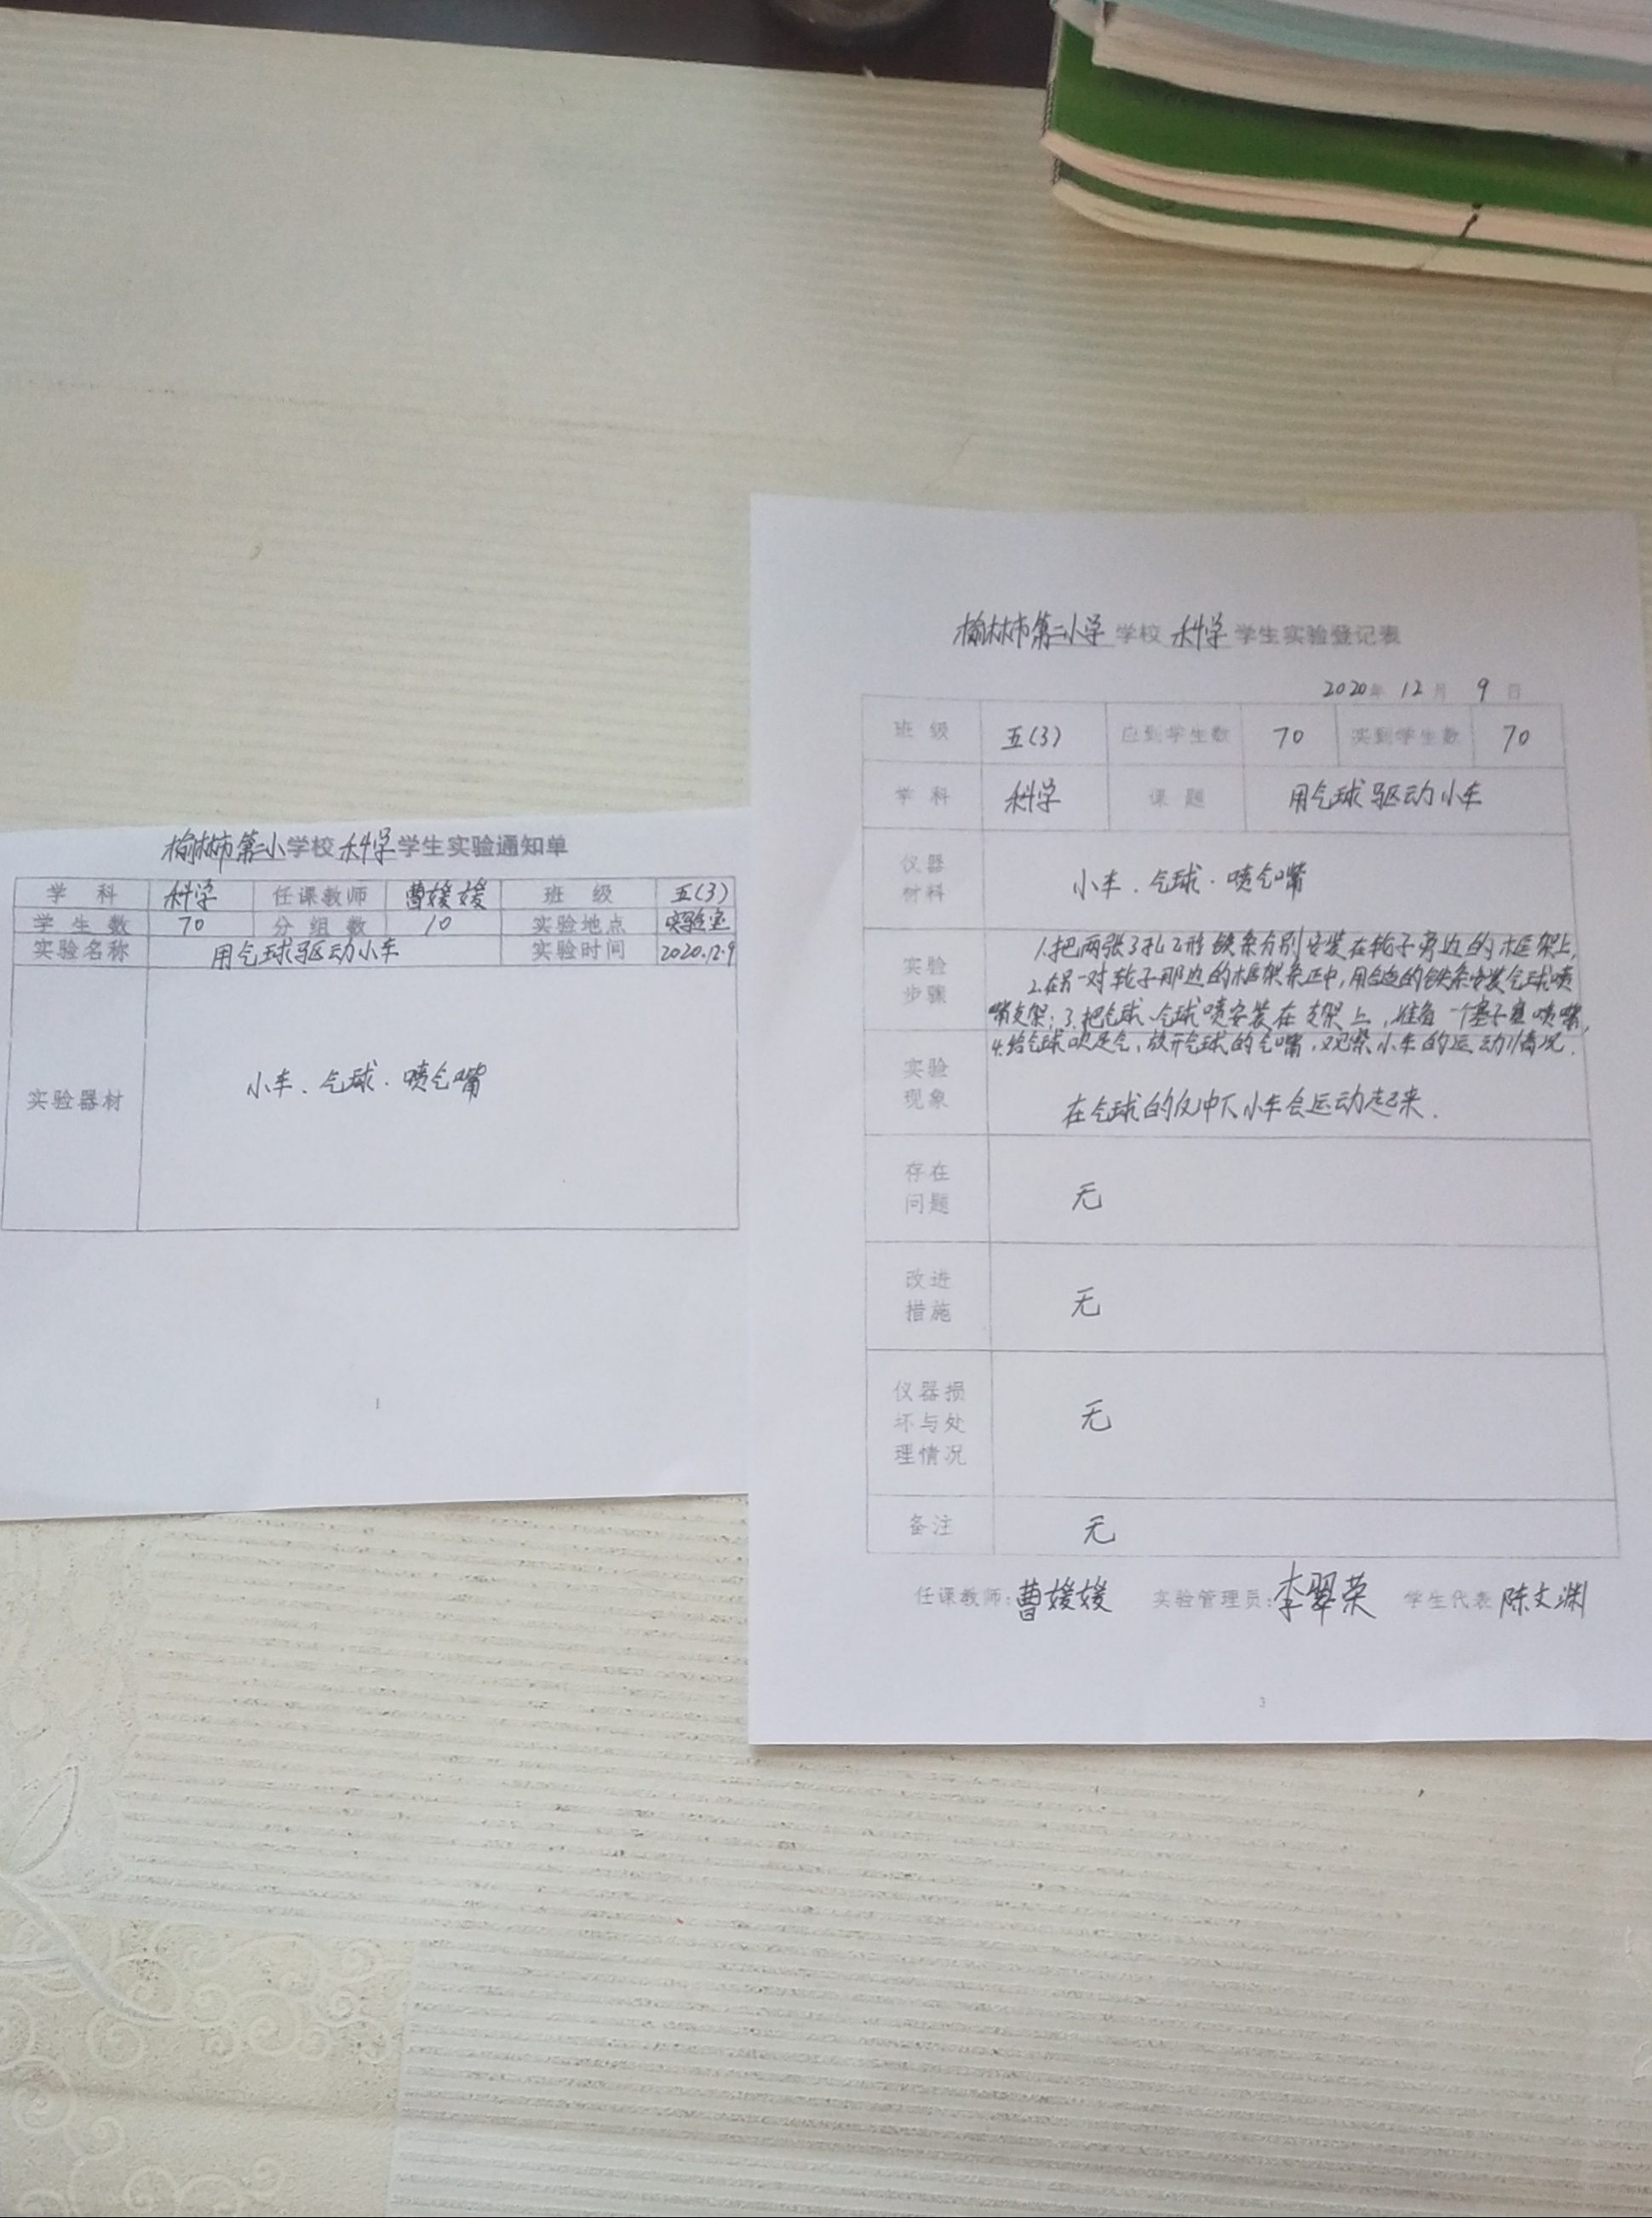 榆林市第二小学校科学学生实验通知单
学 科 科学 任课教师 曹媛媛 班 级 五(3)
学生数 70 分组数 10 实验地点 实验室
实验名称 用气球驱动小车 实验时间 2020.12.9
实验器材 小车、气球、喷气嘴
1
榆林市第二小学 学校 科学 学生实验登记表
2020年 12月 9日
班 级 五(3) 应到学生数 70 实到学生数 70
学 科 科学 课 题 用气球驱动小车
仪器
材料
小车、气球、喷气嘴
实验
步骤
1.把两张3孔Z形铁条分别安装在轮子旁边的框架上,
2.在另一对轮子那边的框架条正中,用合适的铁条安装气球喷
嘴支架;3.把气球、气球喷安装在支架上,准备一个塞子塞喷嘴,
4.给气球吹足气,放开气球的气嘴,观察小车的运动情况.
实验
现象
在气球的反冲下小车会运动起来.
存在
问题
无
改进
措施
无
仪器损
坏与处
理情况
无
备注 无
任课教师:曹媛媛 实验管理员:李翠荣 学生代表 陈文渊
3